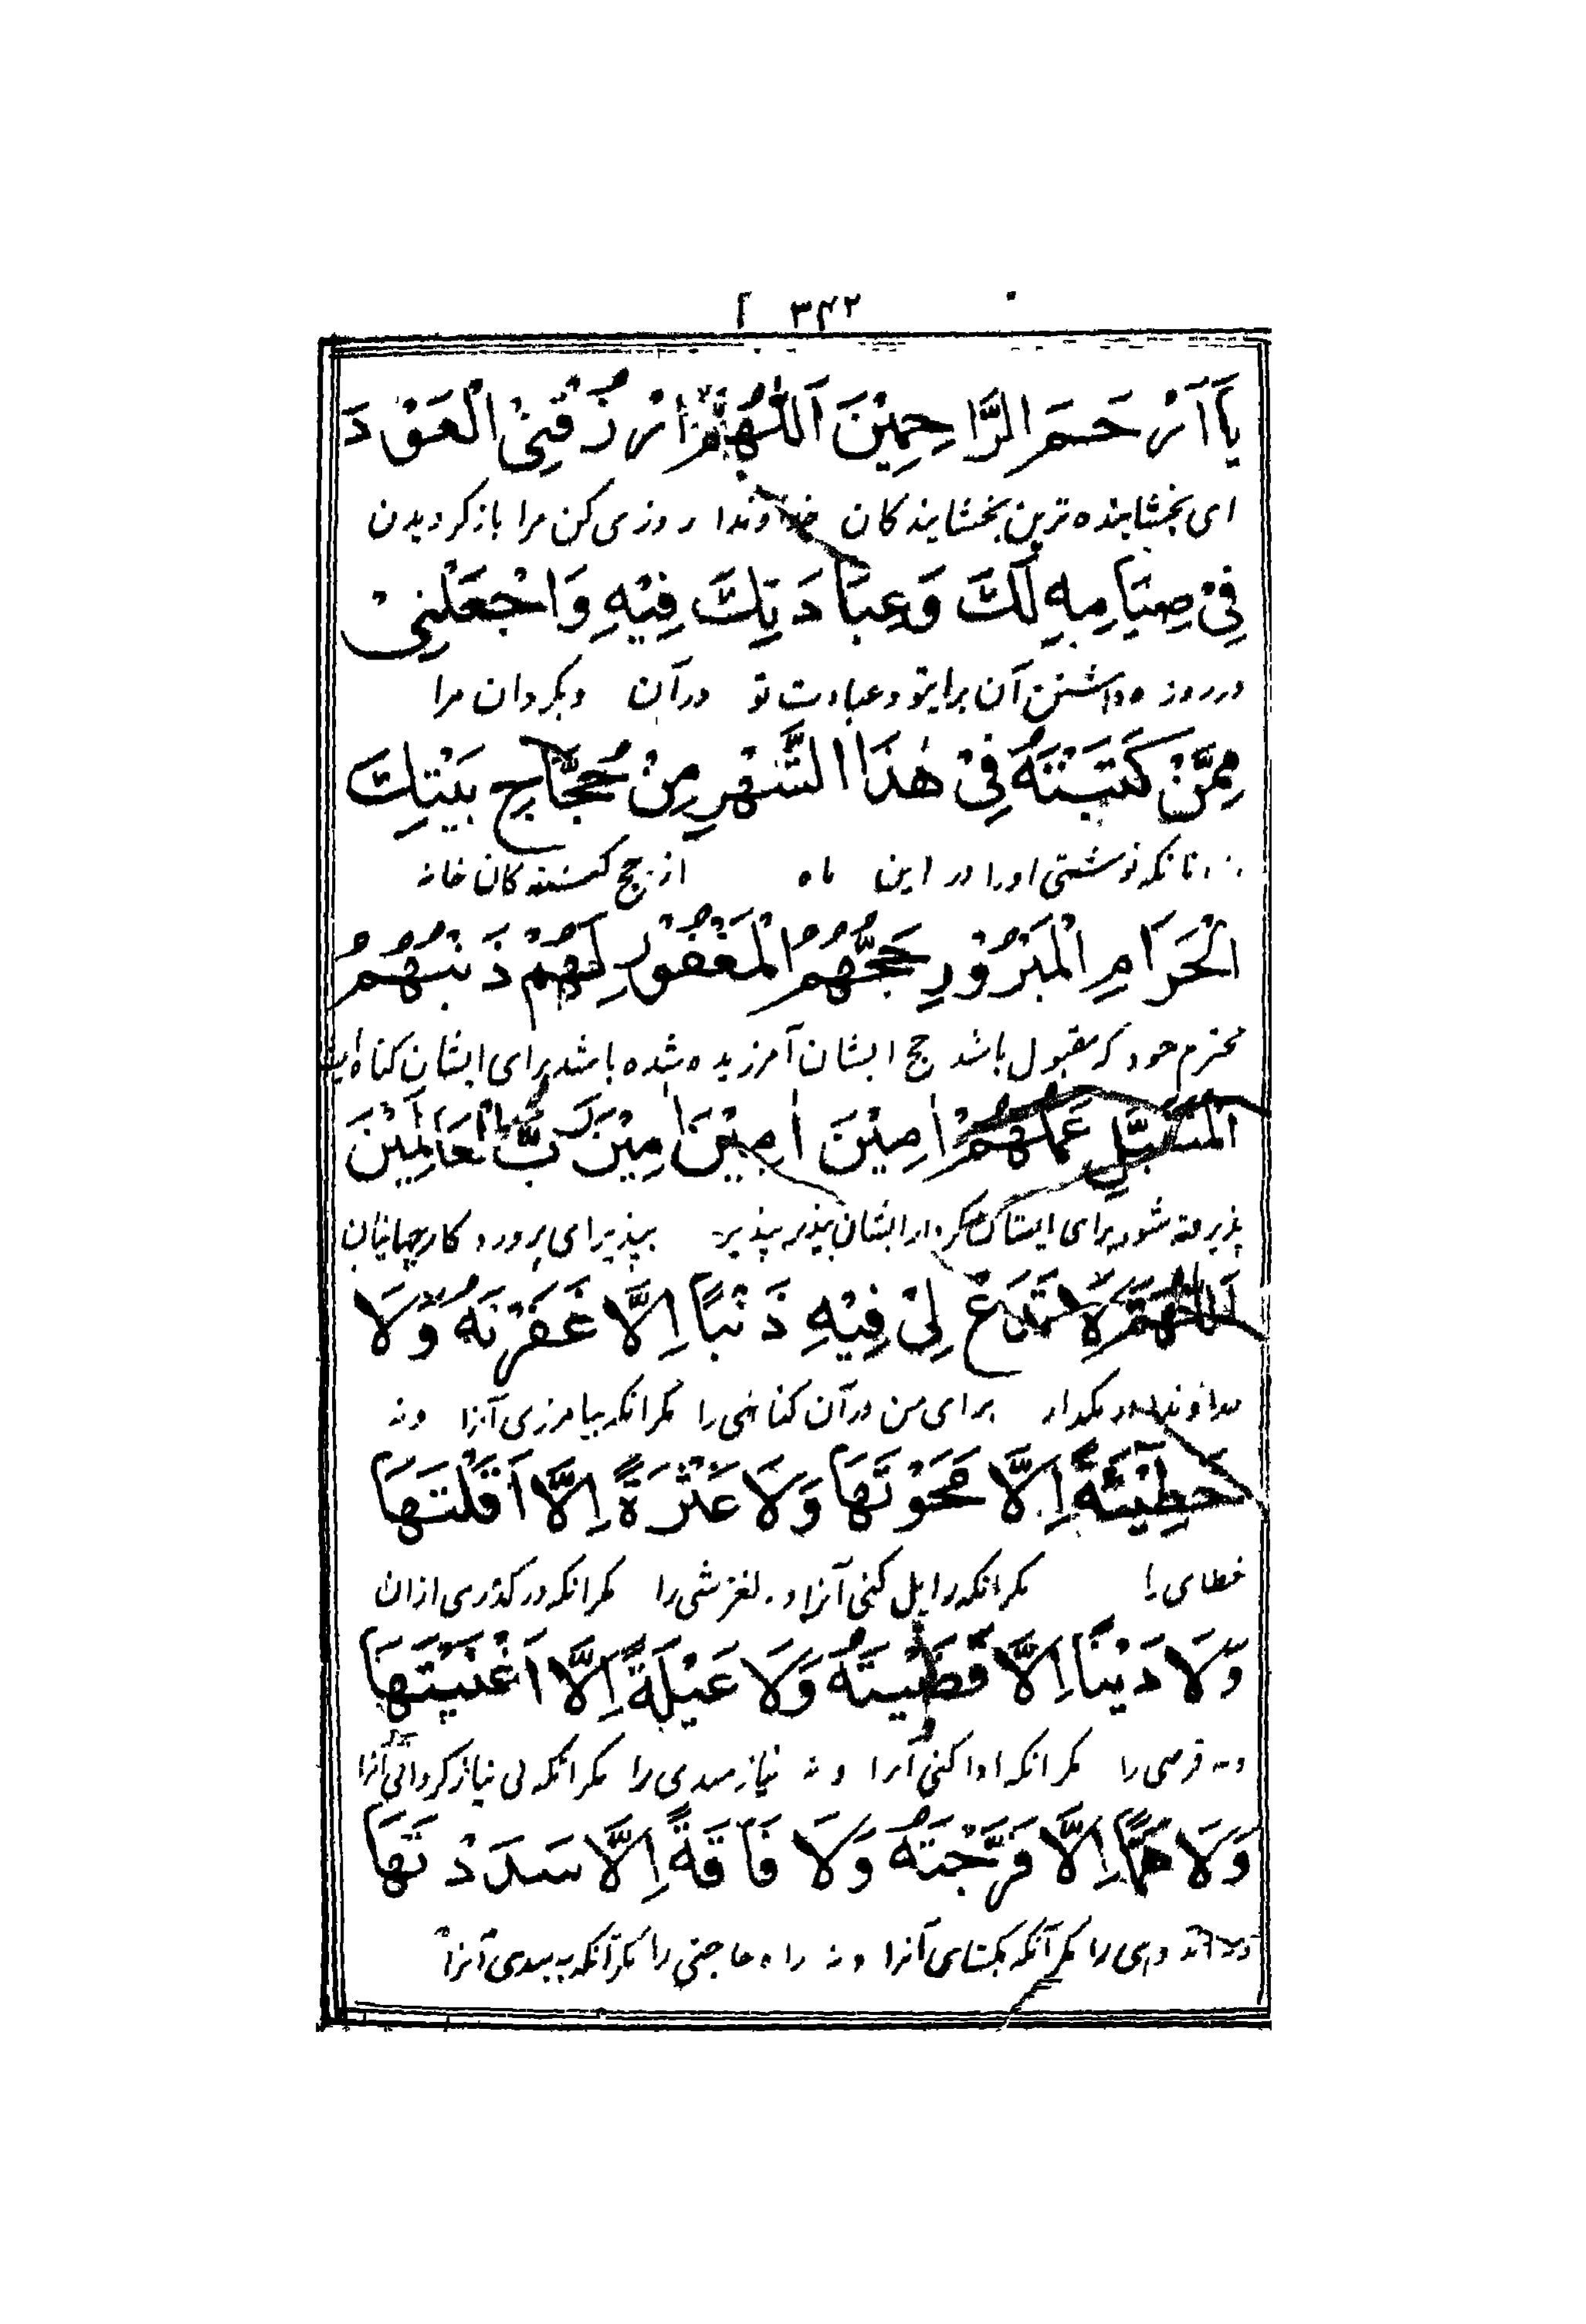 ۳۴۲
يَا اَرْحَمَ الرَّاحِمِيْنَ اَللّٰهُمَّ ارْزُقْنِىْ الْعَوْدَ
ای بخشاینده ترین بخشایندکان خداوندا روزی کن مرا بازکردیدن
فِىْ صِيَامِهٖ لَكَ وَعِبَادَتِكَ فِيْهِ وَاجْعَلْنِىْ
در روزه داشتن آن برایتو وعبادت تو درآن وبکردان مرا
مِمَّنْ كَتَبْتَهُ فِىْ هٰذَا الشَّهْرِ مِنْ حُجَّاجِ بَيْتِكَ
انانکه نوشتی اورا در این ماه از حج کننده کان خانه
الْحَرَامِ الْمَبْرُوْرِ حَجُّهُمُ الْمَغْفُوْرِ لَهُمْ ذَنْبُهُمُ
محترم خود که مقبول باشد حج ایشان آمرزیده شده باشد برای ایشان کناه
الْمُتَقَبَّلِ عَمَلُهُمْ اٰمِيْنَ اٰمِيْنَ اٰمِيْنَ رَبَّ الْعَالَمِيْنَ
پذیرفته شود برای ایشان کردار ایشان بپذیر بپذیر بپذیر ای پروردکار جهانیان
اَللّٰهُمَّ لَا تَدَعْ لِىْ فِيْهِ ذَنْبًا اِلَّا غَفَرْتَهُ وَلَا
خداوندا مکذار برای من درآن کناهی را مکر انکه بیامرزی آنرا ونه
خَطِيْئَةً اِلَّا مَحَوْتَهَا وَلَا عَثْرَةً اِلَّا اَقَلْتَهَا
خطای را مکر انکه زایل کنی آنرا و لغزشی را مکر انکه درکذری ازان
وَلَا دَيْنًا اِلَّا قَضَيْتَهُ وَلَا عَيْلَةً اِلَّا اَغْنَيْتَهَا
ونه قرضی را مکر انکه ادا کنی آنرا ونه نیازمندی را مکر انکه بی نیاز کردانی آنرا
وَلَا هَمًّا اِلَّا فَرَّجْتَهُ وَلَا فَاقَةً اِلَّا سَدَدْتَهَا
را مکر آنکه بکشای آنرا ونه راه حاجتی را مکر آنکه به بندی آنرا